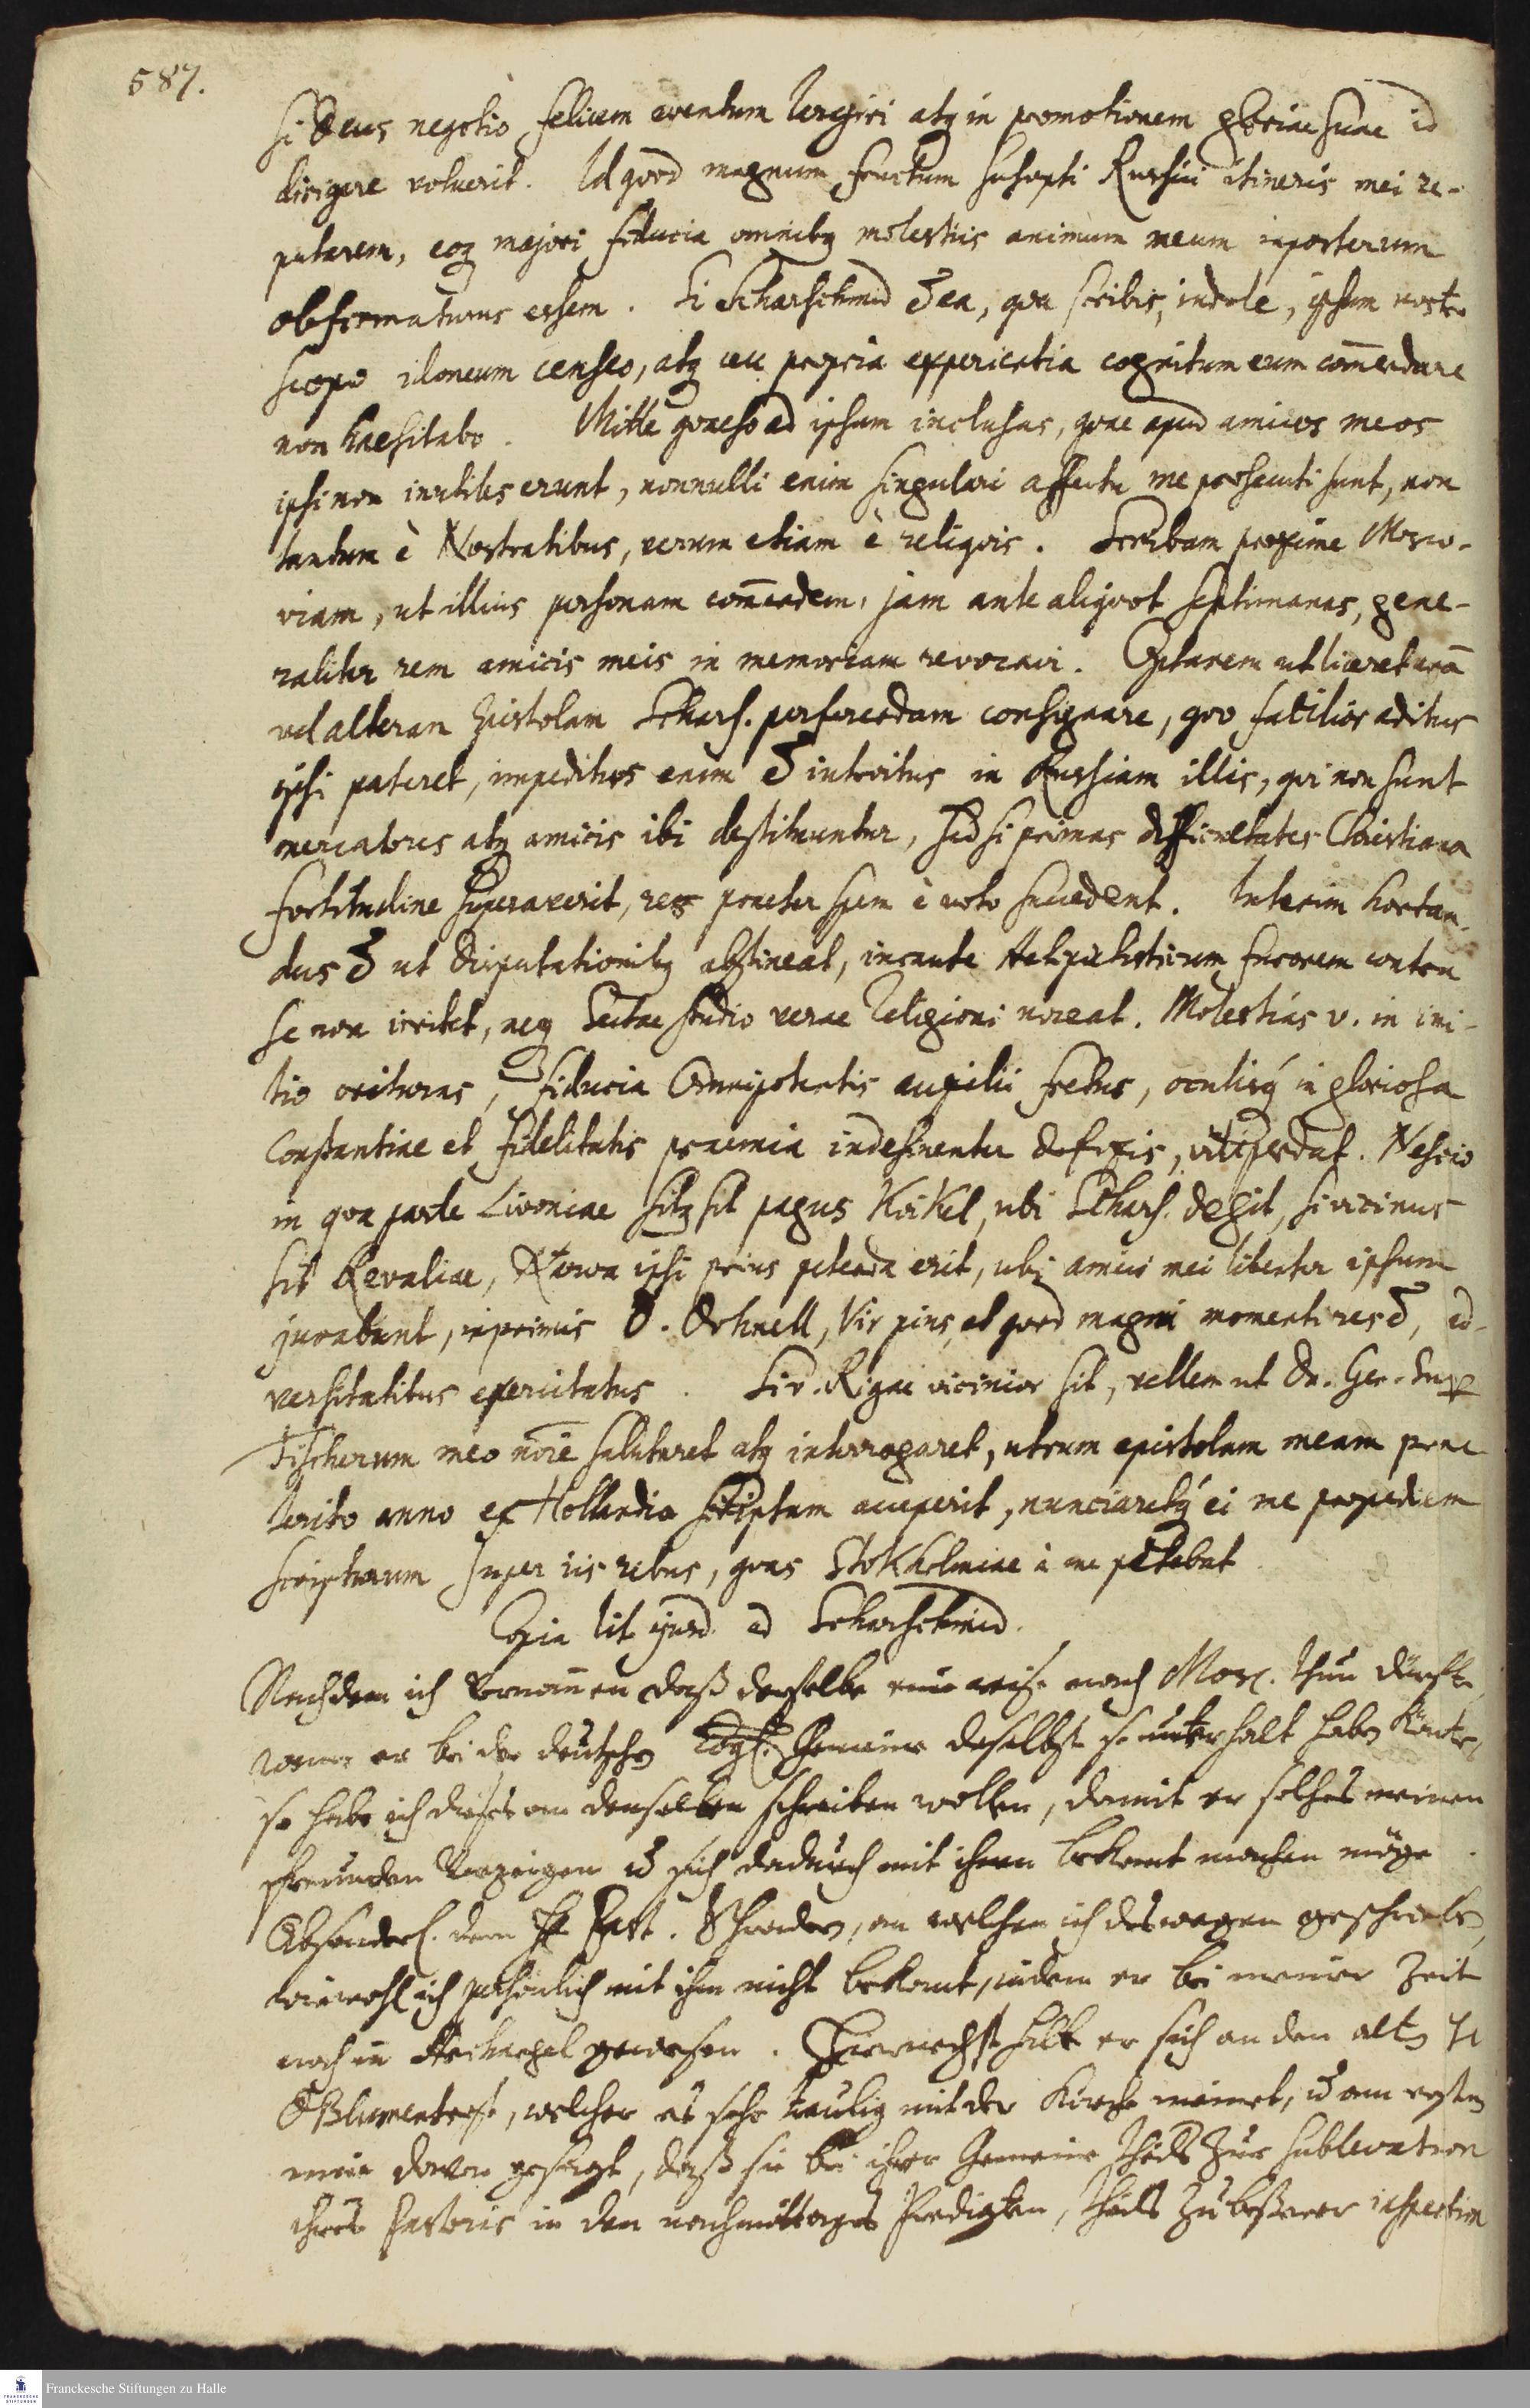 587.
si Deus negotio felicem eventum largiri atq in promotionem gloriae suae id
dirigere voluerit. Id quod magnum fructum suscepti Russici itineris mei re-
putarem, eoq majori fiducia omnibq molestiis animum meum inposterum
obfirmaturus essem. Si Scharschmid ea, qua scribis, indole, ipsum nostro
scopo idoneum censeo, atq ceu propria experientia cognitum eum com̄endare
non haesitabo. Mitte quaeso ad ipsum inclusas, quae apud amicos meos
ipsi non inutiles erunt, nonnulli enim singulari affectu me prosecuti sunt, non
tantum è Nostratibus, verum etiam è reliquis. Scribam proxime Mosco-
viam, ut illius personam com̄endem, jam ante aliquot septimanas, gene-
raliter rem amicis meis in memoriam revocavi. Optarem ut liceret unā
vel alteram Epistolam Schars. perferendam consignare, quo facilior aditus
ipsi pateret, impeditus enim introitus in Russiam illis, qui non sunt
mercatores atq amicis ibi destituuntur, sed si primas difficultates Christiana
fortitudine superaverit, res praeter spem è voto succedent. Interim hortan-
dus ut disputationibq abstineat, incaute furorem contra
se non irritet, neq Sectae studio verae religioni noceat. Molestias v. in ini-
tio orituras, fiducia Omnipotentis auxilii fretus, oculisq in gloriosa
Constantiae et fidelitatis praemia indesinenter defixis, Nescio
in qua parte Livoniae sitq sit pagus Koikel, ubi Schars. degit, si vicinus
sit Revaliae, Narva ipsi prius petenda erit, ubi amici mei libenter ipsum
juvabunt, inprimis D. Schnell, Vir pius, et quod magni momenti res, ad-
versitatibus exercitatus. Si v. Rigae vicinior sit, vellem ut Dn. Gen. Sup
Fischerum meo nōie salutaret atq interrogaret, utrum epistolam meam prae
terito anno ex Hollandia scriptam acceperit, nunciaretq ei me propediem
scripturum super iis rebus, quas Stokholmiae à me petebat
Copia lit ejusd. ad Scharschmid.
Nachdem ich vernom̄en daß derselbe eine reise nach Mosc. thun dürfte,
wenn er bei der deutschen Gemeine daselbst unterhalt haben könte,
so habe ich dieses an denselben schreiben wollen, damit er solches meinen
freunden vorzeigen u sich dadurch mit ihnen bekant machen möge.
Absonderl. dem H Past. Schrader, an welchen ich deswegen geschrieben,
wiewohl ich persönlich mit ihm nicht bekant, indem er bei meiner Zeit
noch in Archangel gewesen. Hiernechst halte er sich an den alten H
D Blumentrost, welcher es sehr treulig mit der Kirche meinet, u am ersten
mir davon gesagt, daß sie bei ihrer Gemeine theils zur sublevation
ihres Pastoris in den nachmittags Predigten, theils zu besserer inspection
Franckesche Stiftungen zu Halle